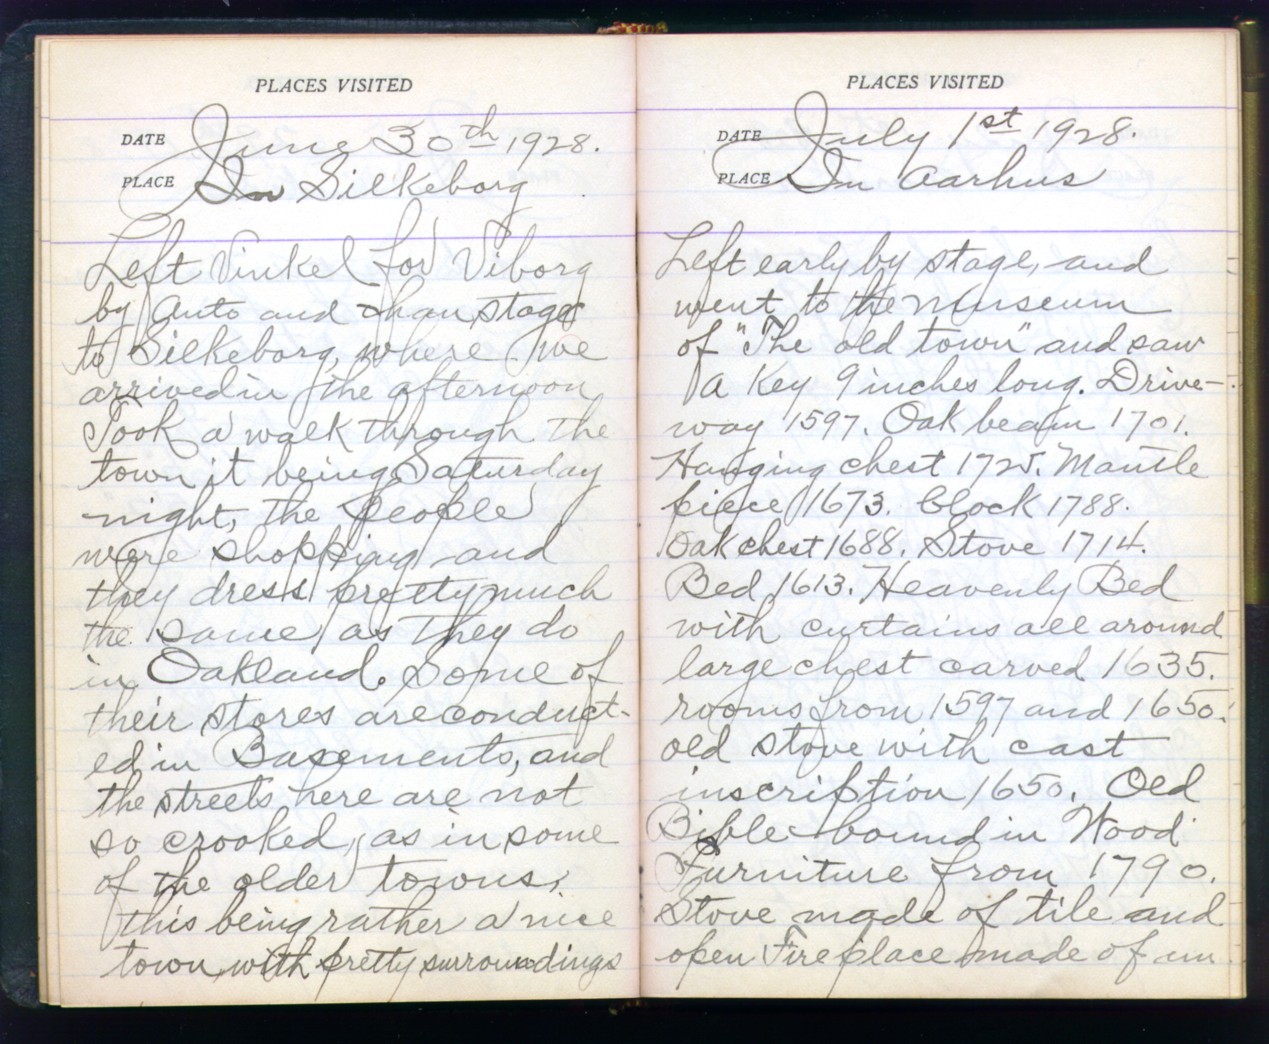 PLACES VISITED
DATE June 30th 1928.
PLACE In Silkeborg
Left Vinkel for Viborg
by Auto and than stages
to Silkeborg, where we
arrived in the afternoon
Took a walk through the
town it being Saturday
night, the people
were shopping and
they dress pretty much
the same as they do
in Oakland. Some of
their stores are conduct-
ed in Basements, and
the streets here are not
so crooked, as in some
of the older towns,
this being rather a nice
town with pretty surroundings
PLACES VISITED
DATE July 1st 1928.
PLACE In Aarhus
Left early by stage, and
went to the Museum
of "The old town" and saw
a Key 9 inches long. Drive-
way 1597. Oak beam 1701.
Hanging chest 1725. Mantle
piece 1673. Clock 1788.
Oak chest 1688. Stove 1714.
Bed 1613. Heavenly Bed
with curtains all around
large chest carved 1635.
rooms from 1597 and 1650.
old stove with cast
inscription 1650. Old
Bible bound in Wood
Furniture from 1790.
Stove made of tile and
open Fireplace made of